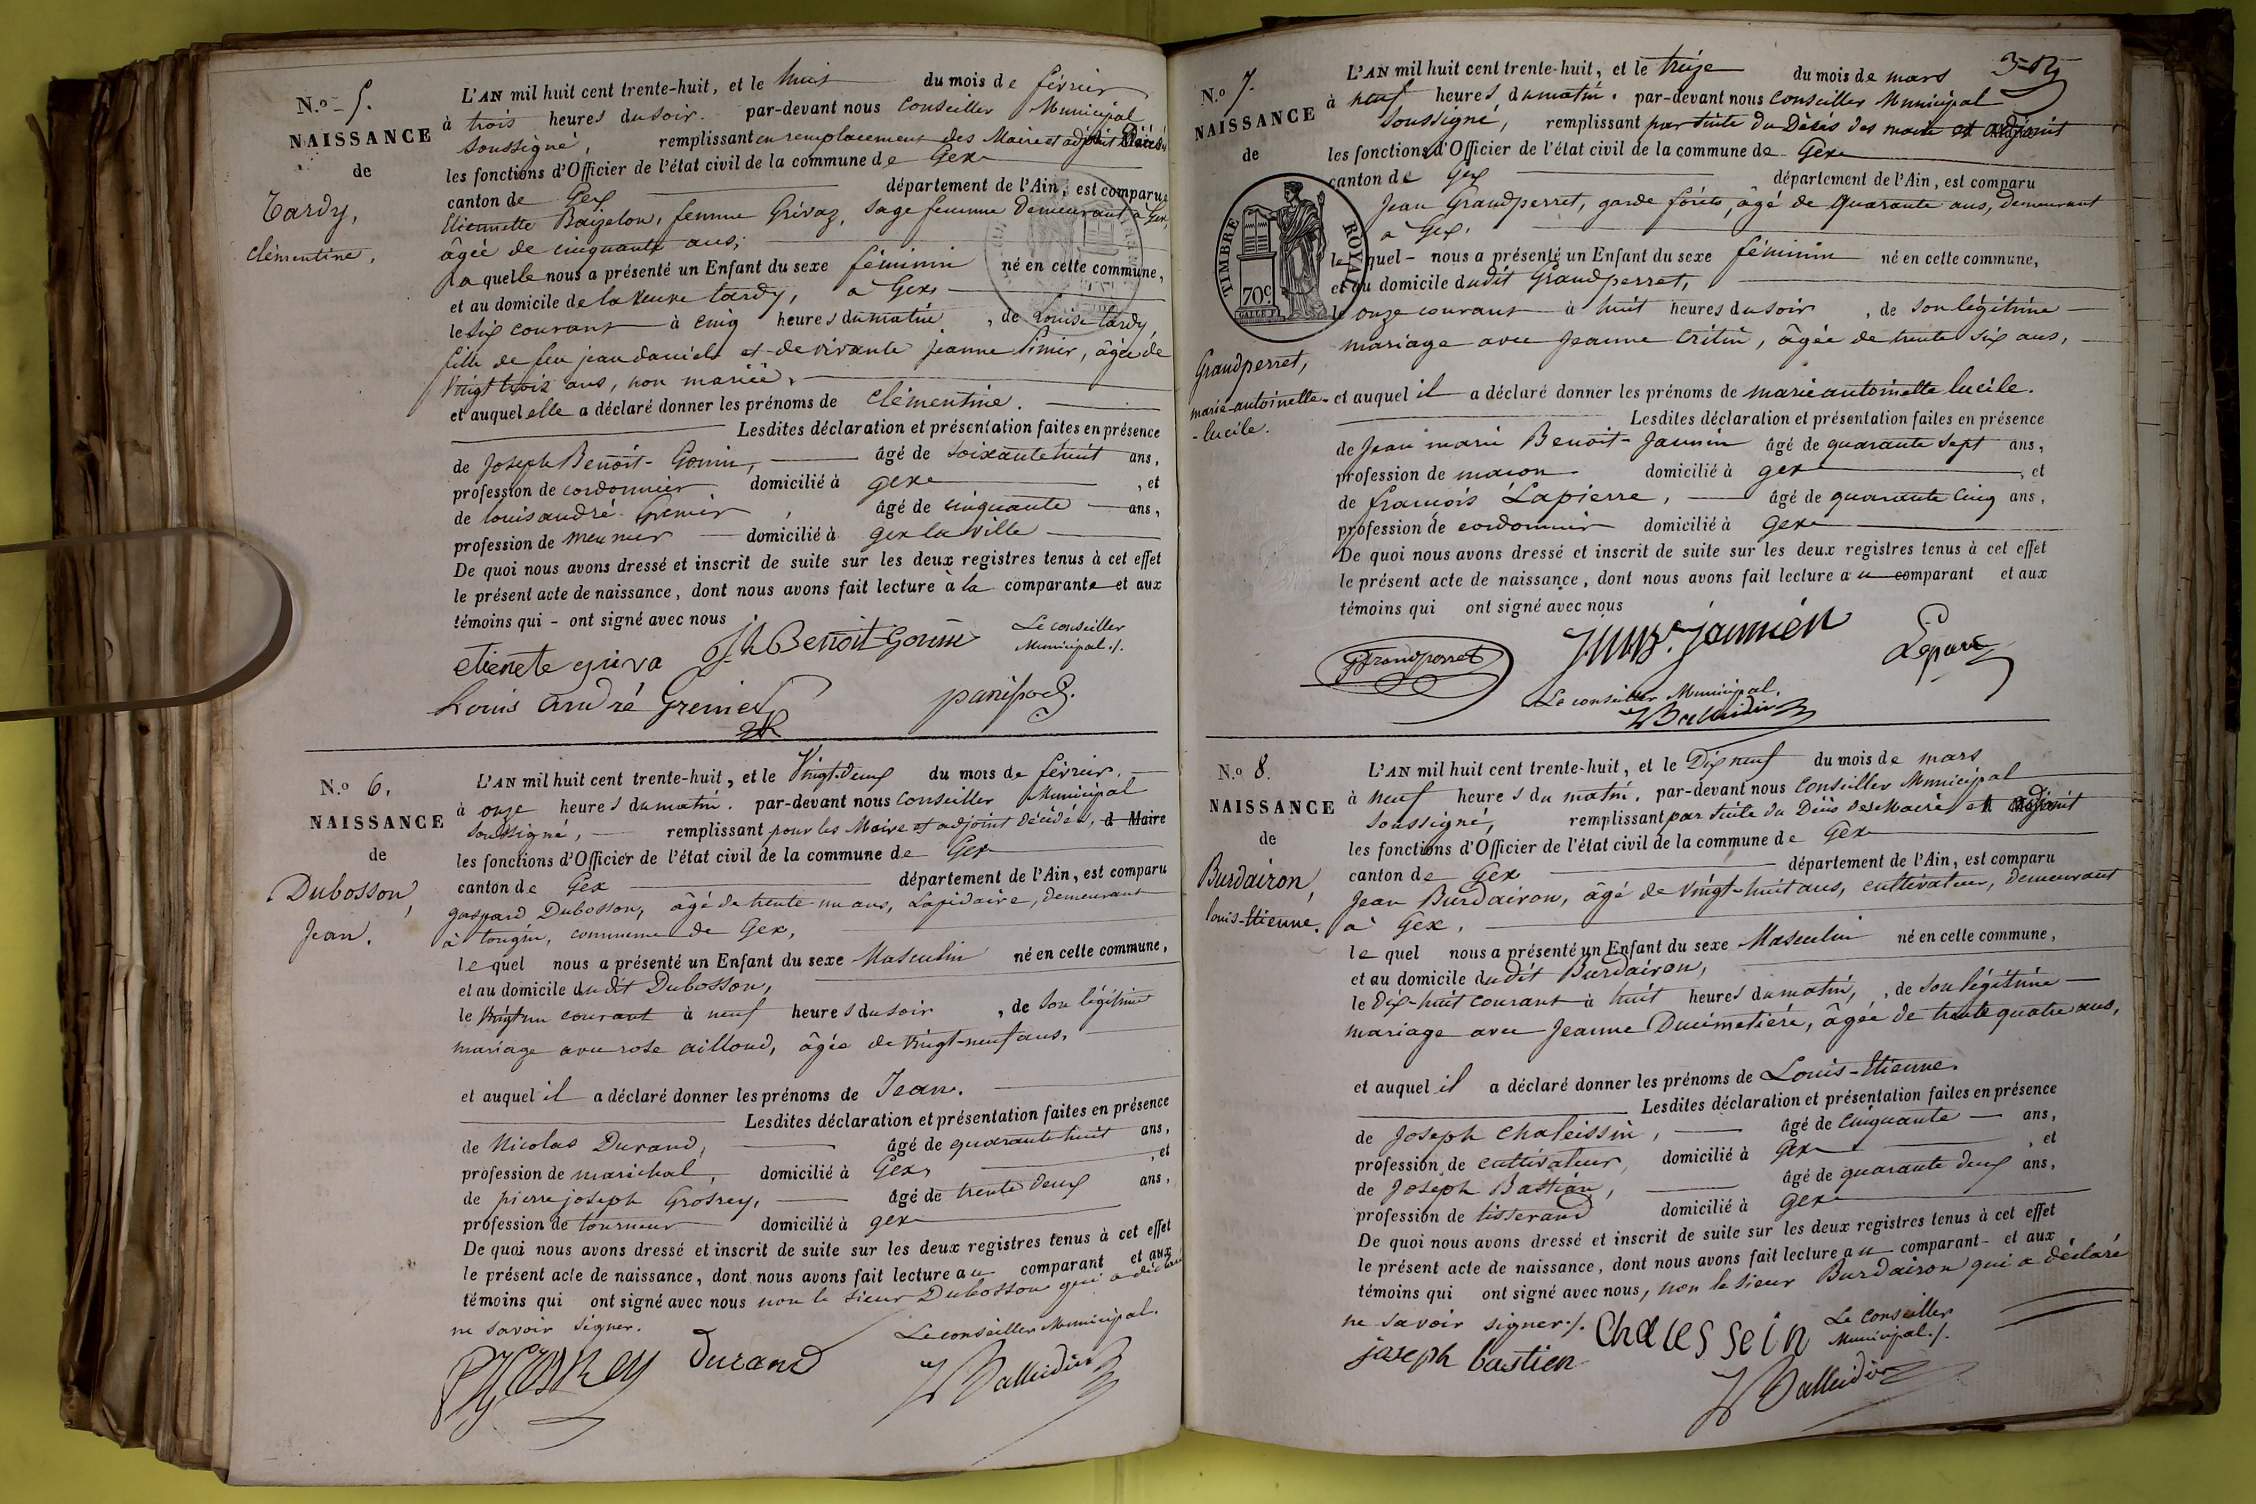 N.o 5.
NAISSANCE
de
Tardy,
Clémentine,
L'AN mil huit cent trente-huit, et le huit du mois de février
à trois heures du soir. par-devant nous Conseiller Municipal
Soussigné, remplissant en remplacement des Maire et adjoint Décédés
les fonctions d'Officier de l'état civil de la commune de Gex
canton de Gex département de l'Ain, est comparue
Etiennette femme Grivaz, Sage femme demeurant à Gex,
âgée de cinquante ans,
laquelle nous a présenté un Enfant du sexe féminin né en cette commune,
et au domicile de la Veuve tardy, à Gex,
le Six courant à cinq heures du matin, de Louise tardy,
fille de feu jean daniel et de vivante jeanne âgée de
Vingt trois ans, non mariée,
et auquel elle a déclaré donner les prénoms de Clémentine.
Lesdites déclaration et présentation faites en présence
de Joseph Benoit-Gonin, âgé de Soixante huit ans,
profession de cordonnier domicilié à gex, et
de louis andré Grenier, âgé de cinquante ans,
profession de meunier domicilié à gex la ville
De quoi nous avons dressé et inscrit de suite sur les deux registres tenus à cet effet
le présent acte de naissance, dont nous avons fait lecture à la comparante et aux
témoins qui - ont signé avec nous
Le conseiller
Municipal./.
etienete griva Jh Benoit-Gonin
Louis André Grenier panissod.
N.o 6.
NAISSANCE
de
Dubosson,
Jean.
L'AN mil huit cent trente-huit, et le Vingt-deux du mois de février.
à onze heures du matin. par-devant nous Conseiller Municipal
Soussigné, remplissant pour les Maire et adjoint décédés, d Maire
les fonctions d'Officier de l'état civil de la commune de Gex
canton de Gex département de l'Ain, est comparu
gaspard Dubosson, âgé de trente-un ans, Lapidaire, demeurant
à tougin, commune de Gex,
lequel nous a présenté un Enfant du sexe Masculin né en cette commune,
et au domicile dudit Dubosson,
le Vingt un courant à neuf heures du soir, de Son légitime
mariage avec rose ailloud, âgée de Vingt-neuf ans.
et auquel il a déclaré donner les prénoms de Jean.
Lesdites déclaration et présentation faites en présence
de Nicolas Durand, âgé de quarante huit ans,
profession de marichal, domicilié à Gex, et
de pierre joseph Grosrey, âgé de trente deux ans,
profession de tourneur domicilié à gex
De quoi nous avons dressé et inscrit de suite sur les deux registres tenus à cet effet
le présent acte de naissance, dont nous avons fait lecture au comparant et aux
témoins qui ont signé avec nous non le Sieur Dubosson qui a déclaré
ne savoir signer.
Le conseiller Municipal.
PJGrosrey Durand
N.o 7.
NAISSANCE
de
TIMBRE ROYAL
70c
Grandperret,
marie-antoinette-
-lucile.
L'AN mil huit cent trente-huit, et le treize du mois de mars
à neuf heures du matin. par-devant nous Conseiller Municipal
Soussigné, remplissant par suite du Décès des maire et adjoint
les fonctions d'Officier de l'état civil de la commune de Gex
canton de Gex département de l'Ain, est comparu
Jean Grandperret, garde forêts, âgé de quarante ans, demeurant
à Gex.
lequel - nous a présenté un Enfant du sexe féminin né en cette commune,
et au domicile dudit Grandperret,
le onze courant à huit heures du soir, de son légitime
mariage avec Jeanne Critin, âgée de trente six ans,
et auquel il a déclaré donner les prénoms de marie antoinette lucile.
Lesdites déclaration et présentation faites en présence
de Jean marie Benoit-Jannin âgé de quarante sept ans,
profession de macon domicilié à gex, et
de françois Lapierre, âgé de quarante cinq ans,
profession de cordonnier domicilié à Gex
De quoi nous avons dressé et inscrit de suite sur les deux registres tenus à cet effet
le présent acte de naissance, dont nous avons fait lecture au comparant et aux
témoins qui ont signé avec nous
Grandperret
Le conseiller Municipal,
N.o 8.
NAISSANCE
de
Burdairon,
louis-Etienne.
L'AN mil huit cent trente-huit, et le Dix neuf du mois de mars
à neuf heures du matin. par-devant nous Conseiller Municipal
Soussigné, remplissant par suite du Décès des Maire et adjoint
les fonctions d'Officier de l'état civil de la commune de Gex
canton de Gex département de l'Ain, est comparu
Jean Burdairon, âgé de Vingt-huit ans, cultivateur, demeurant
à Gex,
lequel nous a présenté un Enfant du sexe Masculin né en cette commune,
et au domicile dudit Burdairon,
le Dix-huit courant à huit heures du matin, de Son légitime
mariage avec Jeanne Ducimetière, âgée de trente quatre ans,
et auquel il a déclaré donner les prénoms de Louis-Etienne.
Lesdites déclaration et présentation faites en présence
de Joseph Chaleissin, âgé de Cinquante ans,
profession de cultivateur, domicilié à Gex, et
de Joseph Bastian, âgé de quarante deux ans,
profession de tisserand domicilié à gex
De quoi nous avons dressé et inscrit de suite sur les deux registres tenus à cet effet
le présent acte de naissance, dont nous avons fait lecture au comparant - et aux
témoins qui ont signé avec nous, non le Sieur Burdairon qui a déclaré
ne savoir signer./.
Le Conseiller
Municipal./.
joseph bastien Chalessein